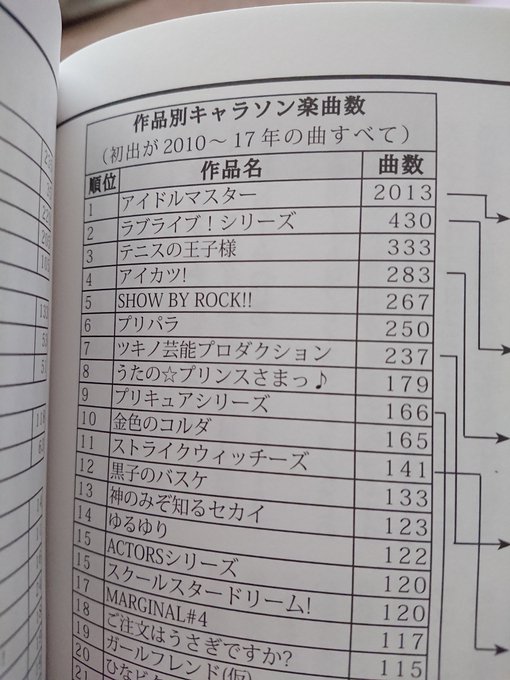 作品別キャラソン楽曲数
（初出が2010～17年の曲すべて）
順位 作品名 曲数
1 アイドルマスター 2013
2 ラブライブ！シリーズ 430
3 テニスの王子様 333
4 アイカツ! 283
5 SHOW BY ROCK!! 267
6 プリパラ 250
7 ツキノ芸能プロダクション 237
8 うたの☆プリンスさまっ♪ 179
9 プリキュアシリーズ 166
10 金色のコルダ 165
11 ストライクウィッチーズ 141
12 黒子のバスケ 133
13 神のみぞ知るセカイ 123
14 ゆるゆり 122
15 ACTORSシリーズ 120
15 スクールスタードリーム! 120
17 MARGINAL#4 117
18 ご注文はうさぎですか? 115
19 ガールフレンド(仮)
20 ひなビタ
21